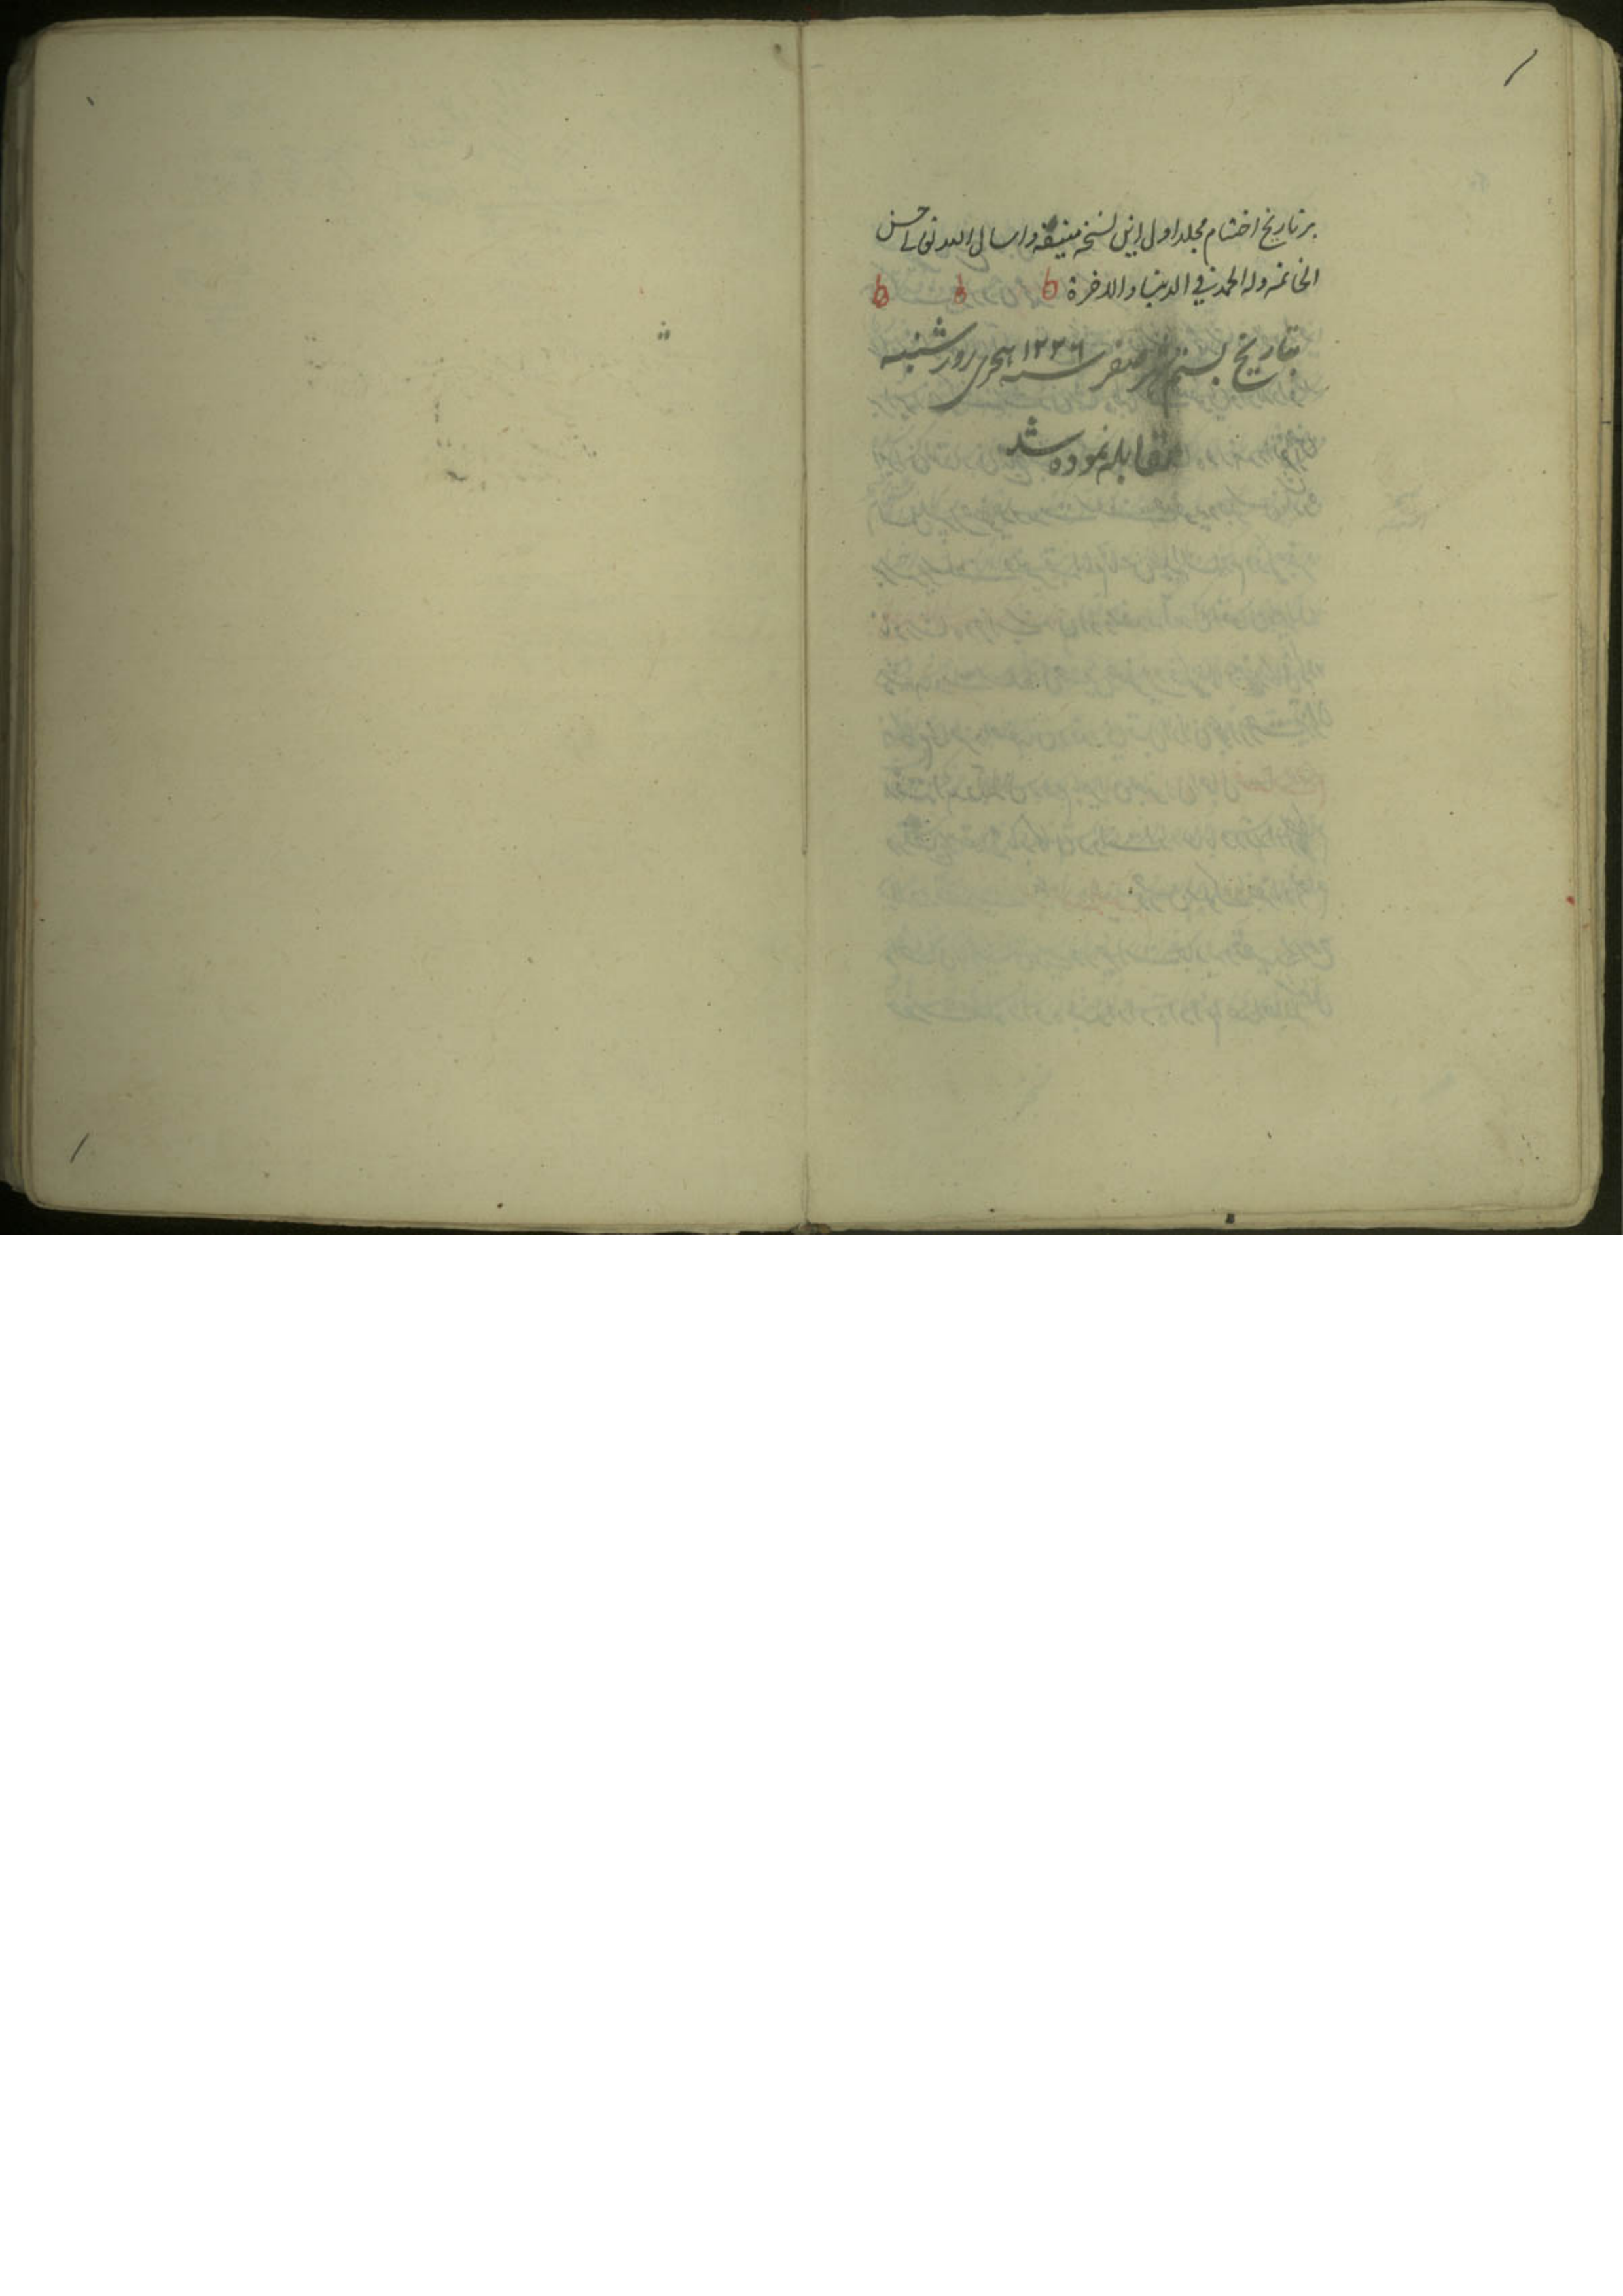 بر تاریخ اختتام مجلد اول این نسخه منیفه و اسال الله تعالی حسن
الخاتمه وله الحمد فی الدنیا والاخرة
بتاریخ بستم شهر صفر سنه ۱۲۲۶ هجری روز شنبه
مقابله نموده شد